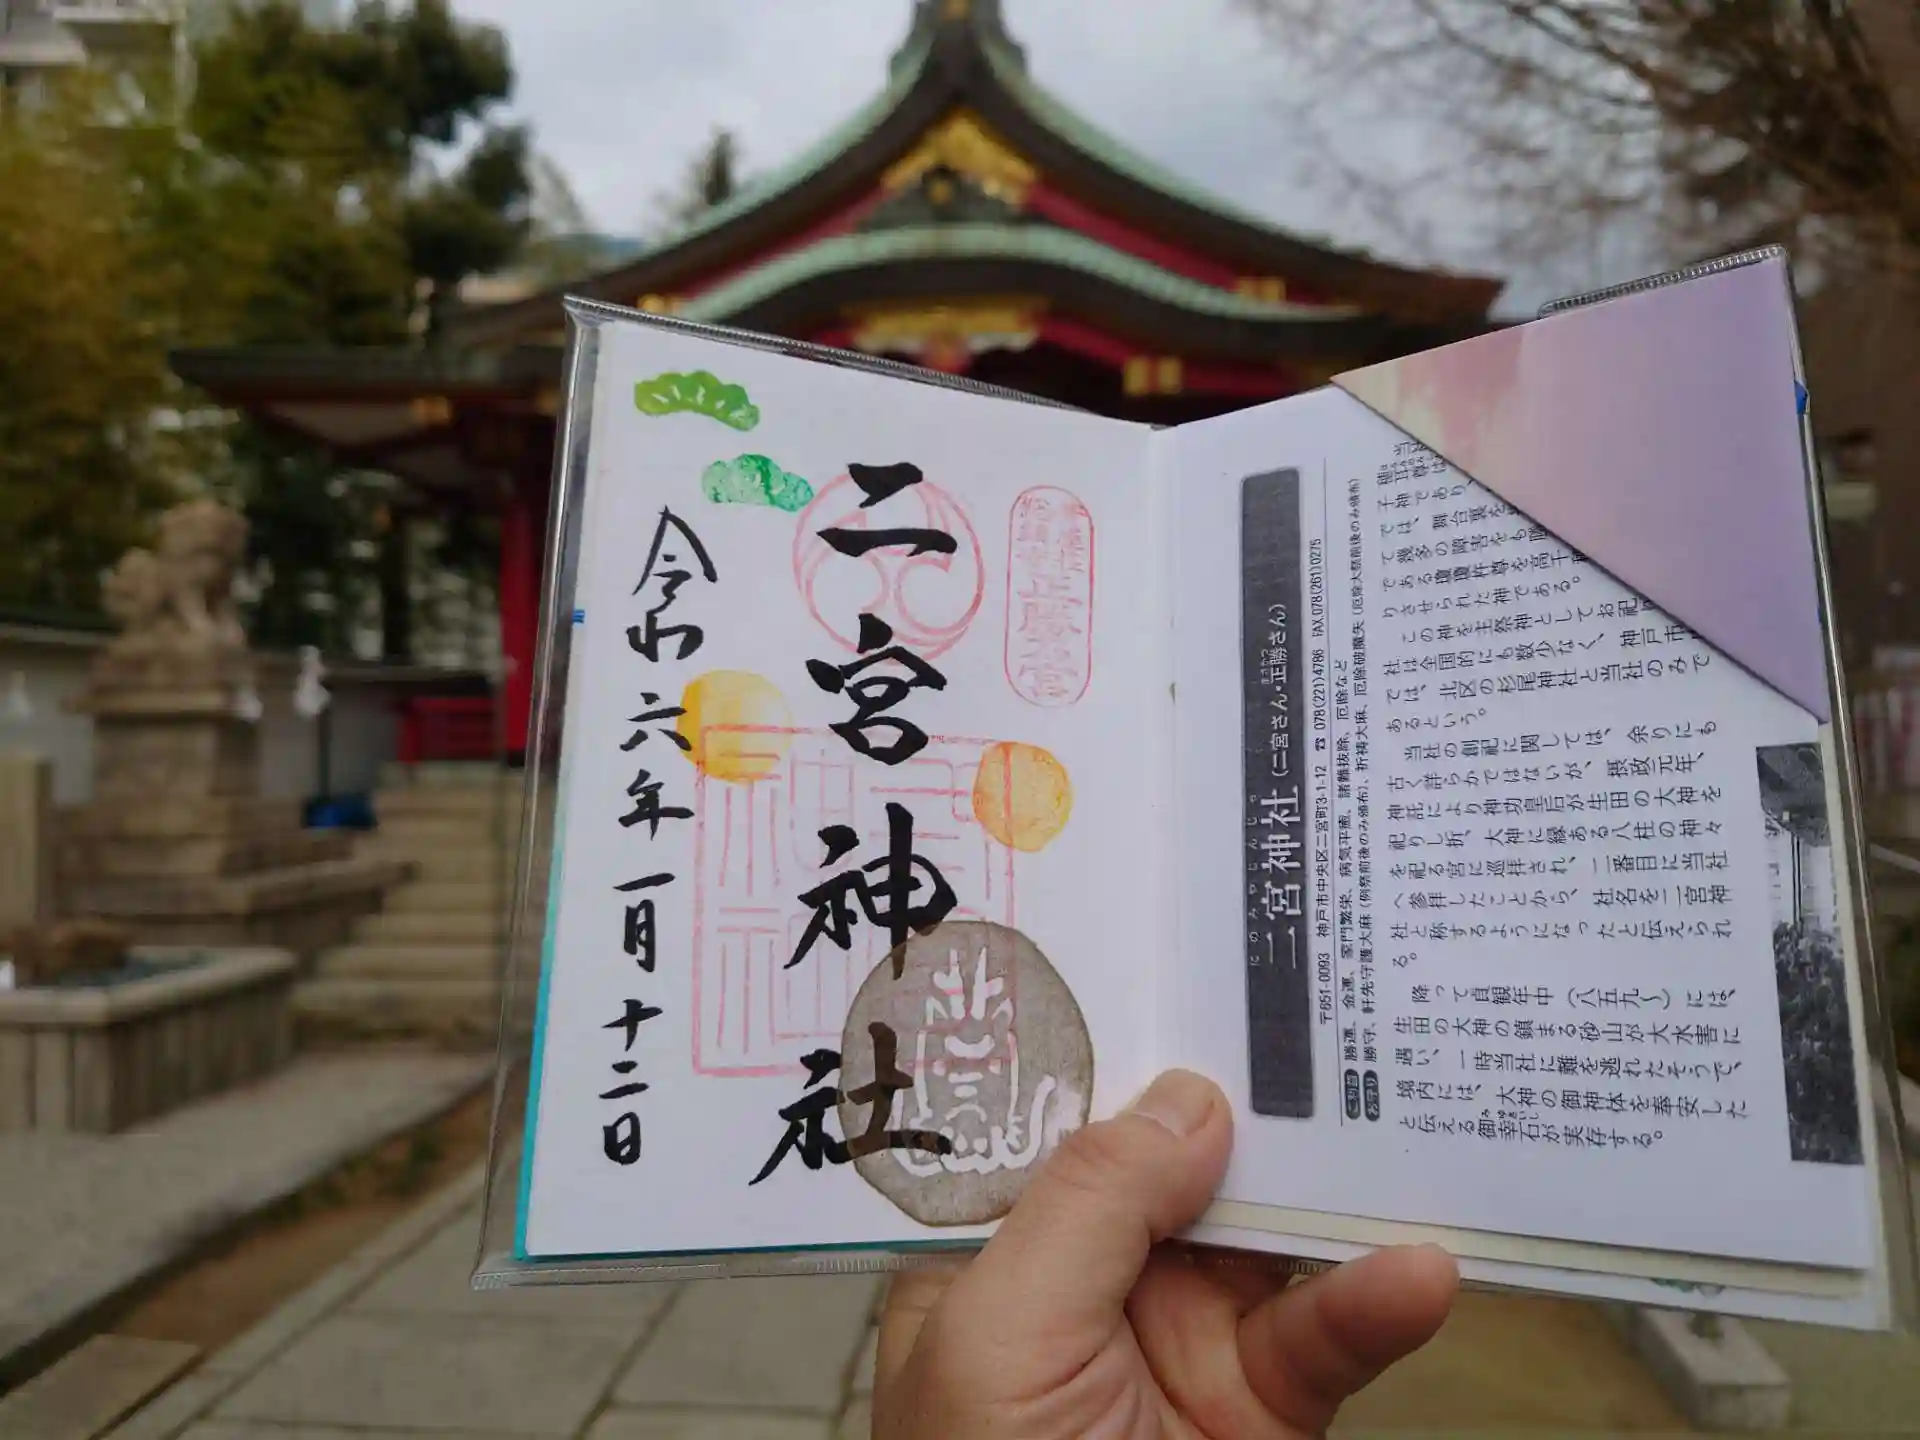 二宮神社
令和六年一月十二日
正勝宮
二宮神社
にのみやじんじゃ
二宮神社(二宮さん・正勝さん)
〒651-0093 神戸市中央区二宮町3-1-12 ☎ 078(221)4786 FAX.078(261)0275
ご利益 勝運、金運、家門繁栄、病気平癒、諸難抜除、厄除など
お守り 勝守、軒先守護大麻(例祭前後のみ頒布)、祈祷大麻、厄除破魔矢(厄除大祭前後のみ頒布)
当
穂耳尊は
子神であり、
では、舞台裏を
て幾多の障害をも
である瓊瓊杵尊を高千
りさせられた神である。
この神を主祭神としてお祀
社は全国的にも数少なく、神戸市
では、北区の杉尾神社と当社のみで
あるという。
当社の創祀に関しては、余りにも
古く詳らかではないが、摂政元年、
神託により神功皇后が生田の大神を
祀りし折、大神に縁ある八柱の神々
を祀る宮に巡拝され、二番目に当社
へ参拝したことから、社名を二宮神
社と称するようになったと伝えられ
る。
降って貞観年中(八五九〜)には、
生田の大神の鎮まる砂山が大水害に
遇い、一時当社に難を逃れたそうで、
境内には、大神の御神体を奉安した
と伝える御幸石が実存する。